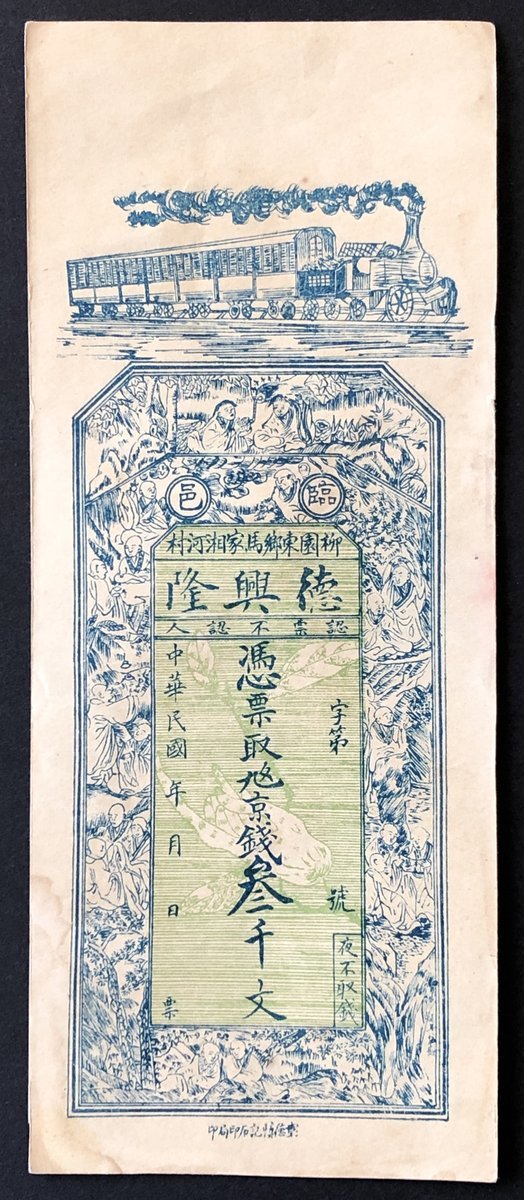 臨邑
柳園東鄉馬家湘河村
德興隆
認票不認人
字第 號
夜不取錢
憑票取 京錢叁千文
中華民國 年 月 日 票
記石印局印